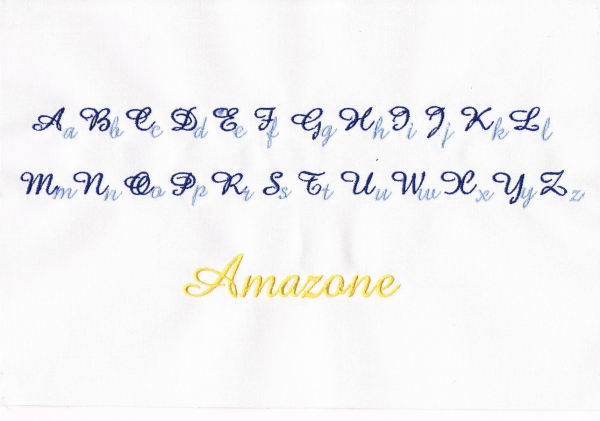 Aa Bb Cc Dd Ee Ff Gg Hh Ii Jj Kk Ll
Mm Nn Oo Pp Rr Ss Tt Uu Ww Xx Yy Zz
Amazone